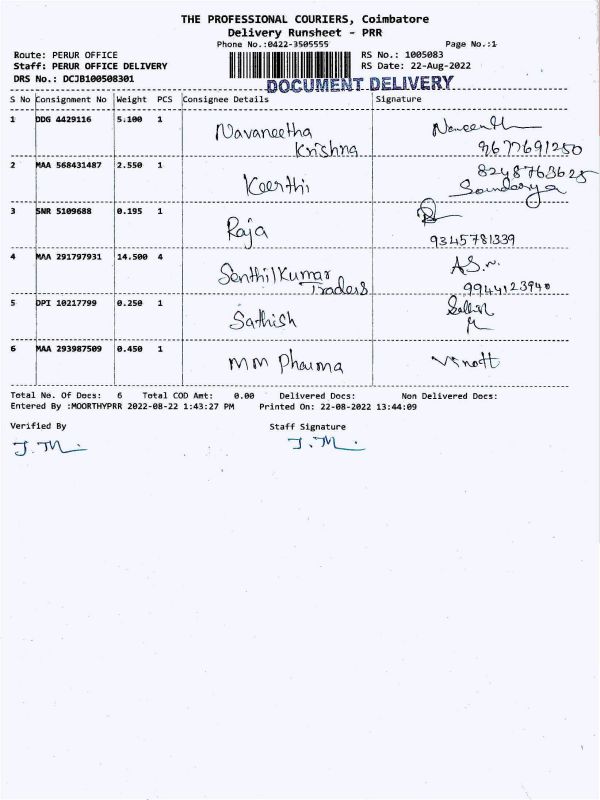 THE PROFESSIONAL COURIERS, Coimbatore
Delivery Runsheet - PRR
Phone No.:0422-3505555 Page No.:1
Route: PERUR OFFICE RS No.: 1005083
Staff: PERUR OFFICE DELIVERY RS Date: 22-Aug-2022
DRS No.: DCJB100508301
DOCUMENT DELIVERY
S No Consignment No Weight PCS Consignee Details Signature
1 DDG 4429116 5.100 1 Navaneetha
Krishna 9677691250
2 MAA 568431487 2.550 1 Keerthi 8248763625
Soundarya
3 SNR 5109688 0.195 1 Raja
9345781339
4 MAA 291797931 14.500 4 Senthil Kumar A.S.
Traders 9944123940
5 DPI 10217799 0.250 1 Sathish
6 MAA 293987509 0.450 1 MM Pharma Vinoth
Total No. Of Docs: 6 Total COD Amt: 0.00 Delivered Docs: Non Delivered Docs:
Entered By :MOORTHYPRR 2022-08-22 1:43:27 PM Printed On: 22-08-2022 13:44:09
Verified By Staff Signature
J.M. J.M.